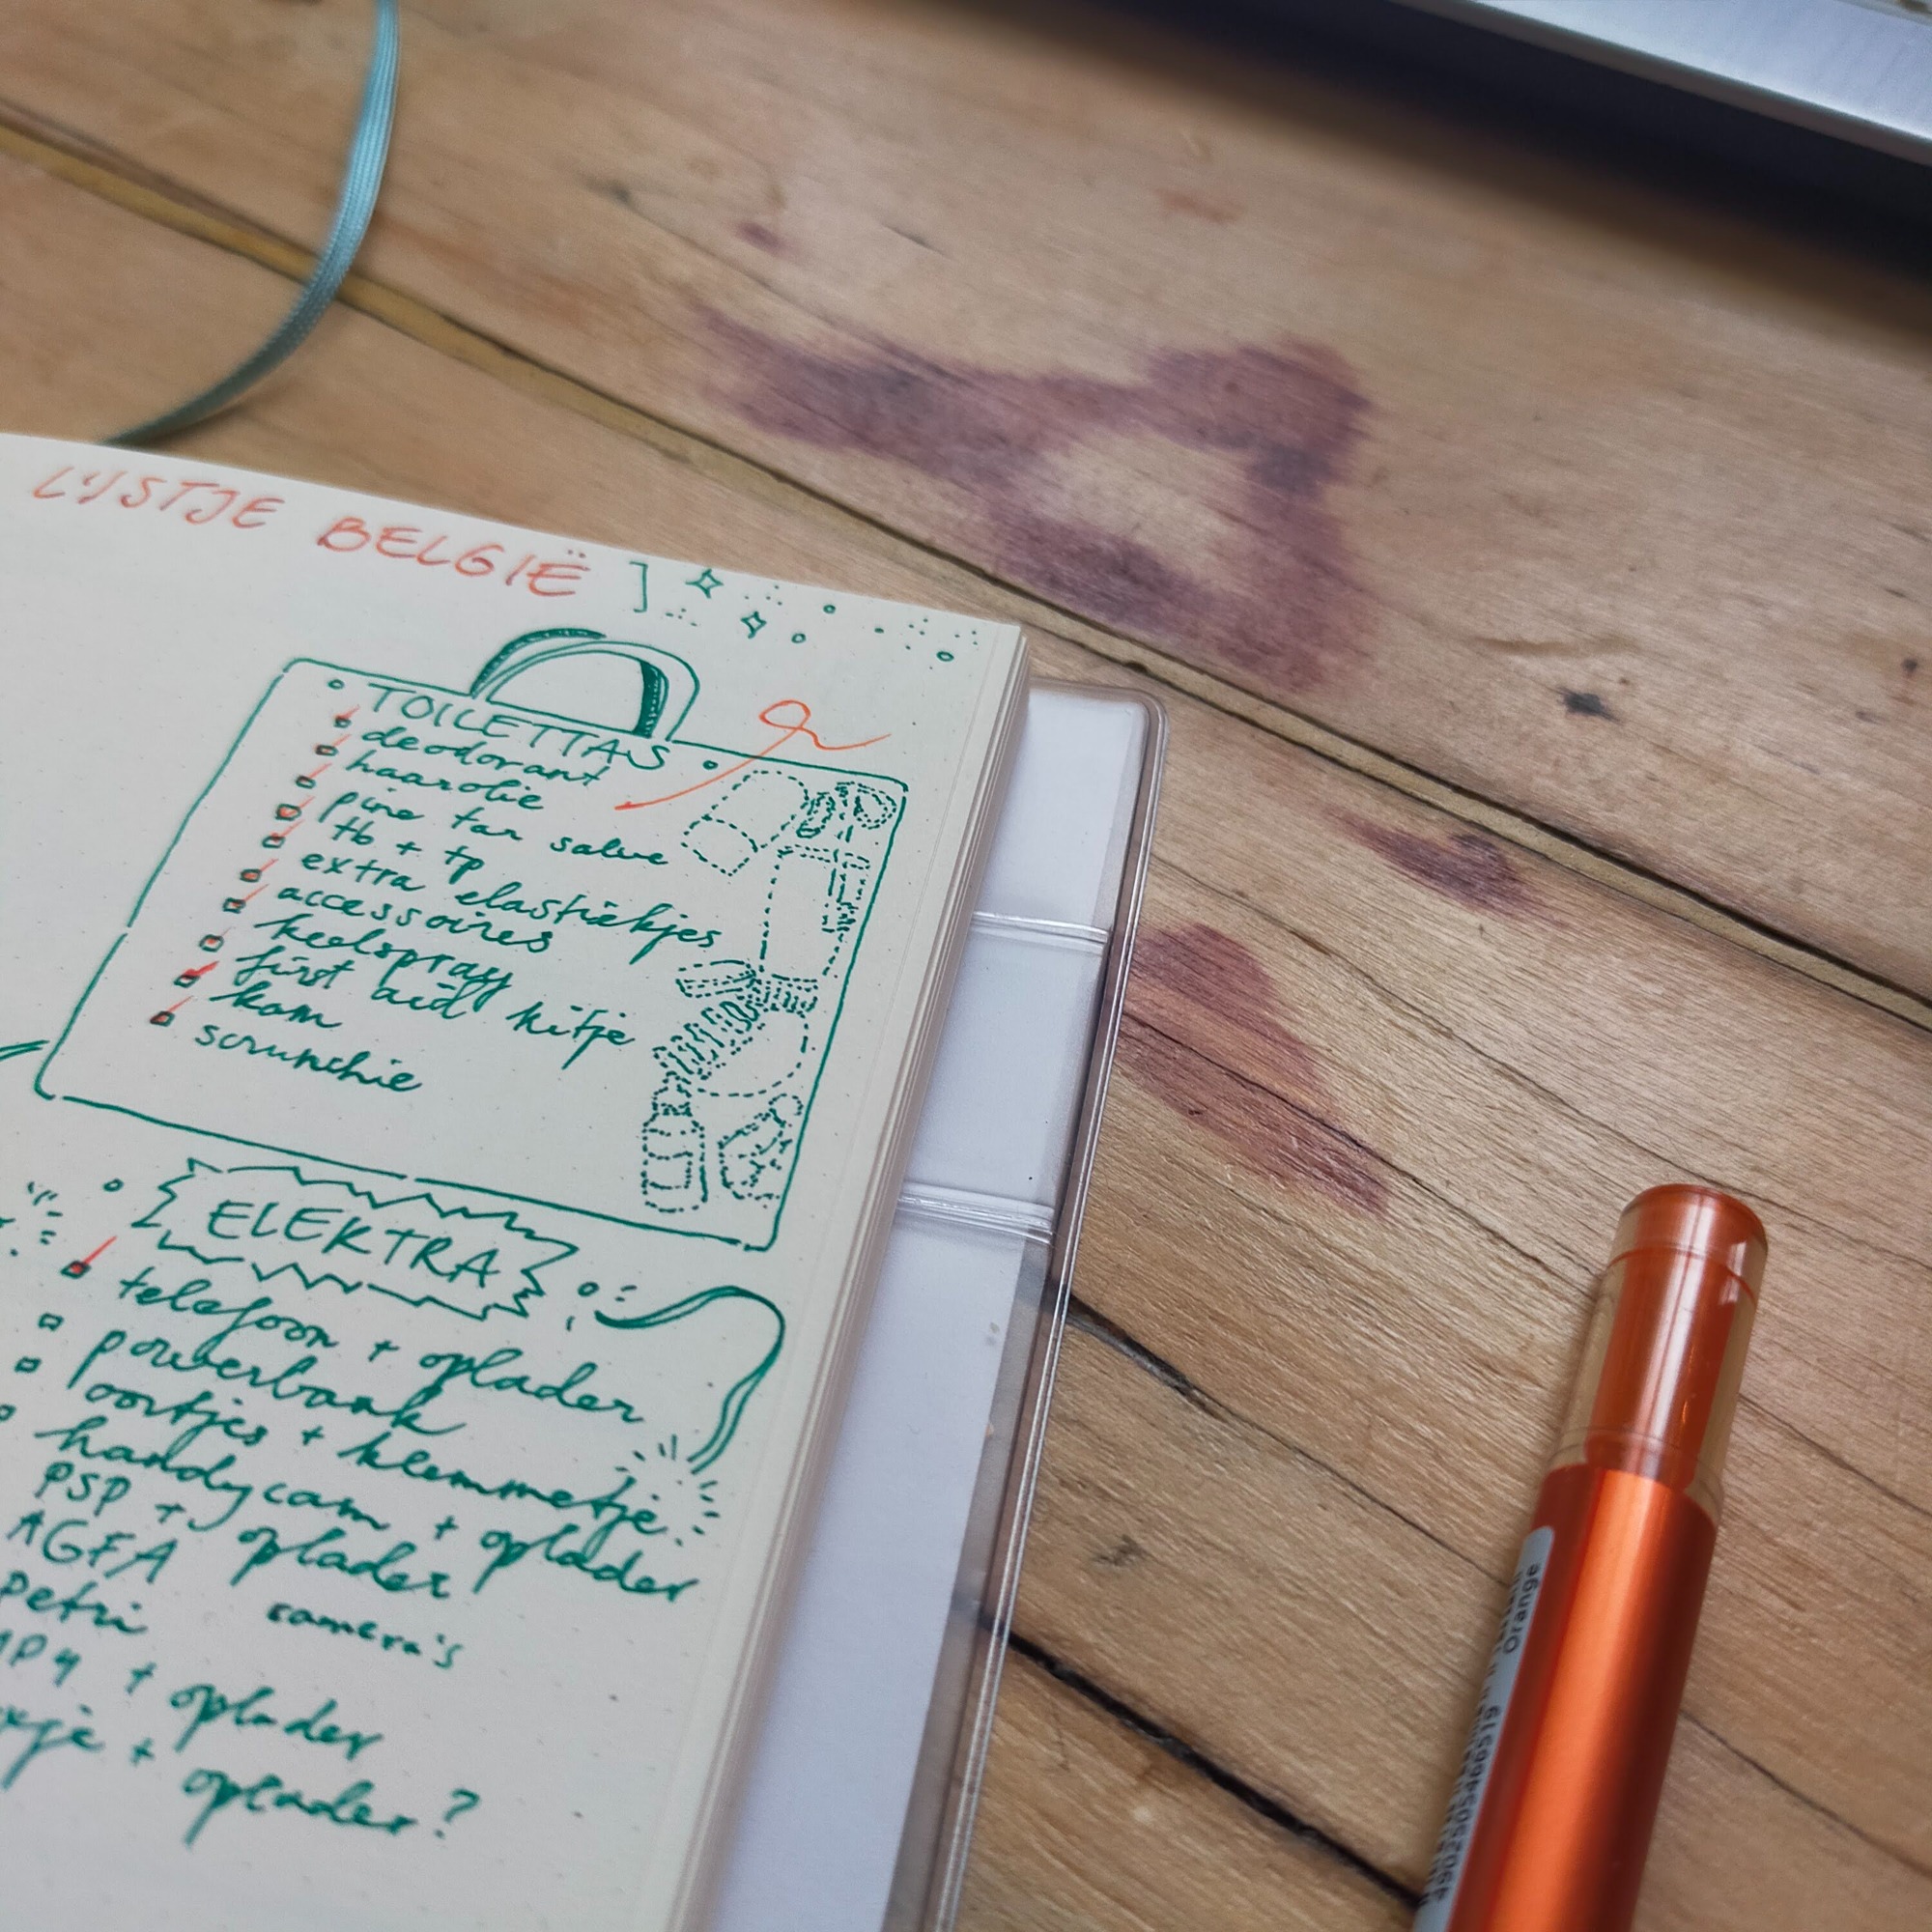 LIJSTJE BELGIË ]
TOILETTAS
deodorant
haarolie
pine tar salve
tb + tp
extra elastiekjes
accessoires
keelspray
first aid kitje
kam
scrunchie
ELEKTRA
telefoon + oplader
powerbank
oortjes + klemmetje
handycam + oplader
PSP + oplader
AGFA
camera's
petri
+ oplader
+ oplader?
Orange
4902505466519